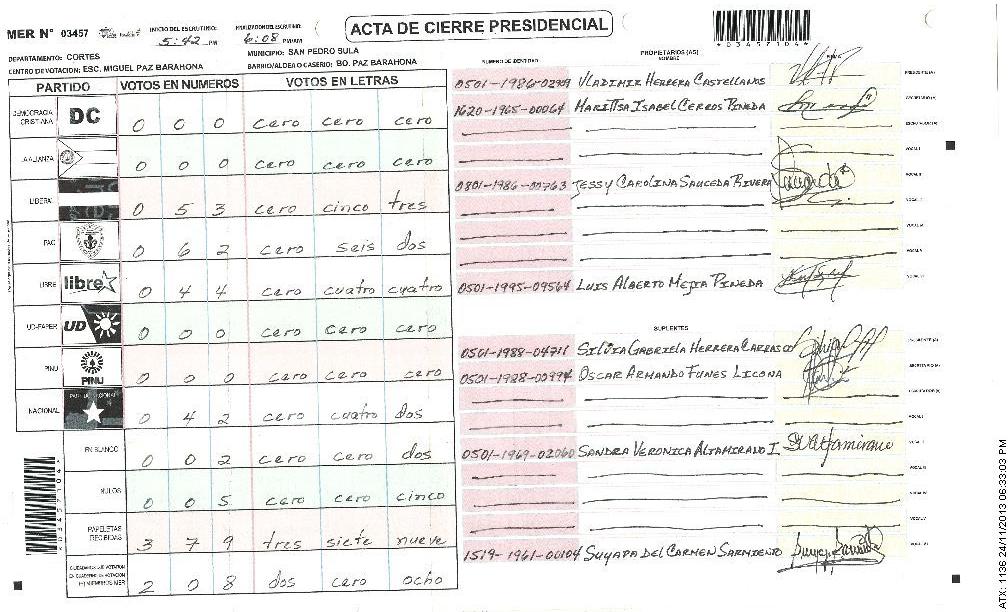 MER N° 03457
INICIO DEL ESCRUTINIO:
5:42 PM
FINALIZACION DEL ESCRUTINIO:
6:08 PM/AM
ACTA DE CIERRE PRESIDENCIAL
*03457104*
DEPARTAMENTO: CORTES
MUNICIPIO: SAN PEDRO SULA
CENTRO DE VOTACION: ESC. MIGUEL PAZ BARAHONA
BARRIO/ALDEA O CASERIO: BO. PAZ BARAHONA
PARTIDO VOTOS EN NUMEROS VOTOS EN LETRAS
DEMOCRACIA CRISTIANA DC 0 0 0 cero cero cero
LA ALIANZA 0 0 0 cero cero cero
LIBERAL 0 5 3 cero cinco tres
PAC 0 6 2 cero seis dos
LIBRE libre 0 4 4 cero cuatro cuatro
UD-FAPER UD 0 0 0 cero cero cero
PINU PINU 0 0 0 cero cero cero
NACIONAL 0 4 2 cero cuatro dos
EN BLANCO 0 0 2 cero cero dos
NULOS 0 0 5 cero cero cinco
PAPELETAS RECIBIDAS 3 7 9 tres siete nueve
2 0 8 dos cero ocho
NUMERO DE IDENTIDAD
PROPIETARIOS (AS)
NOMBRE
FIRMA
0501-1986-02909 VLADIMIR HERRERA CASTELLANOS PRESIDENTE (A)
1620-1965-00064 MARITTSA ISABEL CERROS PINEDA SECRETARIO (A)
ESCRUTADOR (A)
VOCAL I
0801-1986-00763 JESSY CAROLINA SAUCEDA RIVERA
0501-1995-09564 LUIS ALBERTO MEJIA PINEDA
SUPLENTES
0501-1988-04711 SILVIA GABRIELA HERRERA CARRASCO
0501-1988-00994 OSCAR ARMANDO FUNES LICONA SECRETARIO (A)
ESCRUTADOR (A)
VOCAL I
0501-1969-02060 SANDRA VERONICA ALTAMIRANO I.
1519-1961-00104 SUYAPA DEL CARMEN SARMIENTO
ATX: 1136 24/11/2013 06:33:03 PM